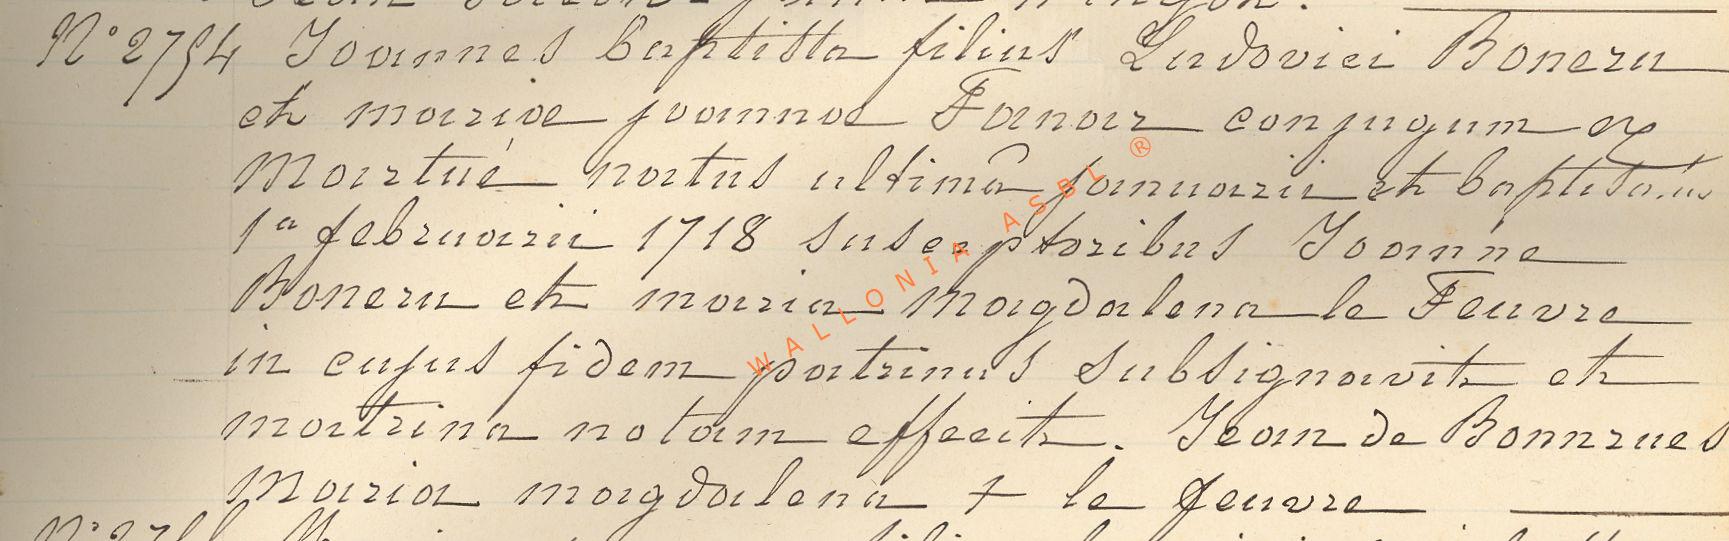 N° 2754 Joannes baptista filius Ludovici Boneru
et mariae joannae Fanar conjugum ex
Martué natus ultimâ januarii et baptisatus
1a februarii 1718 susceptoribus Joanne
Boneru et maria Magdalena le Feuvre
in cujus fidem patrinus subsignavit et
matrina notam effecit. Jean de Bonnrues
Maria magdalena + le feuvre
WALLONIA ASBL ®